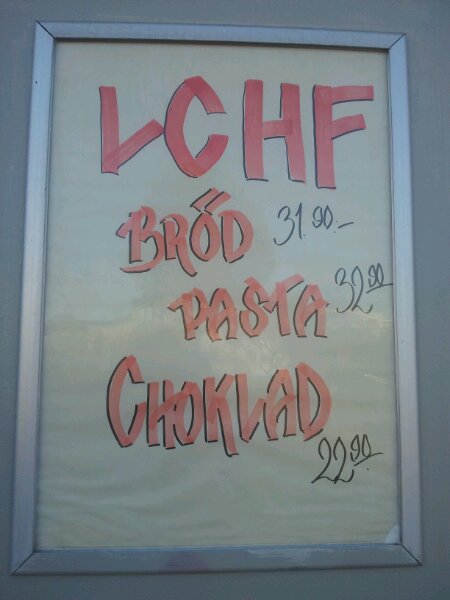 LCHF
BRÖD 31.90.-
PASTA 32.90
CHOKLAD
22.90.